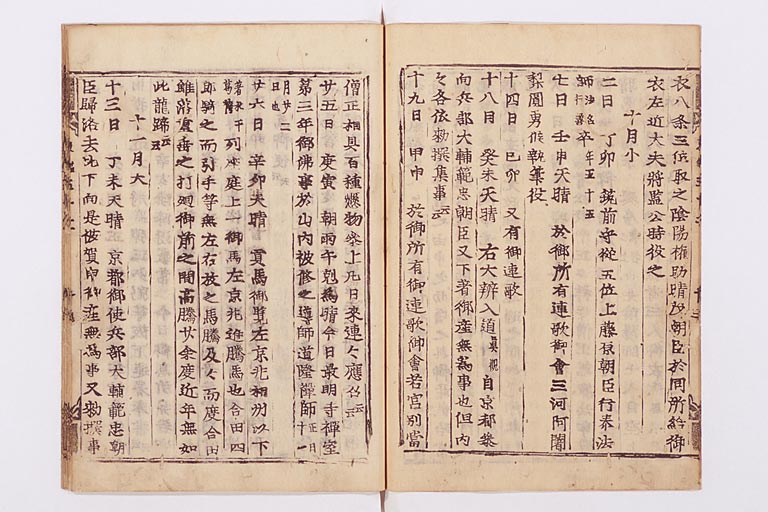 衣八条三位取之陰陽権助晴茂朝臣於同所給御
衣左近大夫將監公時役之
十月小
二日　丁卯　筑前守從五位上藤原朝臣行泰法
師卒年五十五
七日　壬申天晴　於御所有連歌御會三河阿闍
梨圓勇候執筆役
十四日　己卯　又有御連歌
十八日　癸未天晴　右大辨入道眞觀自京都参
向兵部大輔範忠朝臣又下著御産無爲事也但内
々各依勅撰集事云云
十九日　甲申　於御所有御連歌御會若宮別當
僧正相具百種爆物参上九日來連々應召云云
廿五日　庚寅　朝雨午尅爲晴今日最明寺禪室
第三年御佛事於山内被修之導師道隆禪師正日十一
月廿二日也
廿六日　辛卯天晴　貢馬御覽左京兆相州以下
著水干葛袴列候庭上一御馬左京兆進騰馬也合田四
郎騎之而引手等無左右放之馬騰及々而度合田
雖常屋垂之打廻御前之間高騰廿余度近年無如
此龍蹄云云
十一月大
十三日　丁未天晴　京都御使兵部大輔範忠朝
臣歸洛去比下向是被賀申御産無爲事又勅撰事